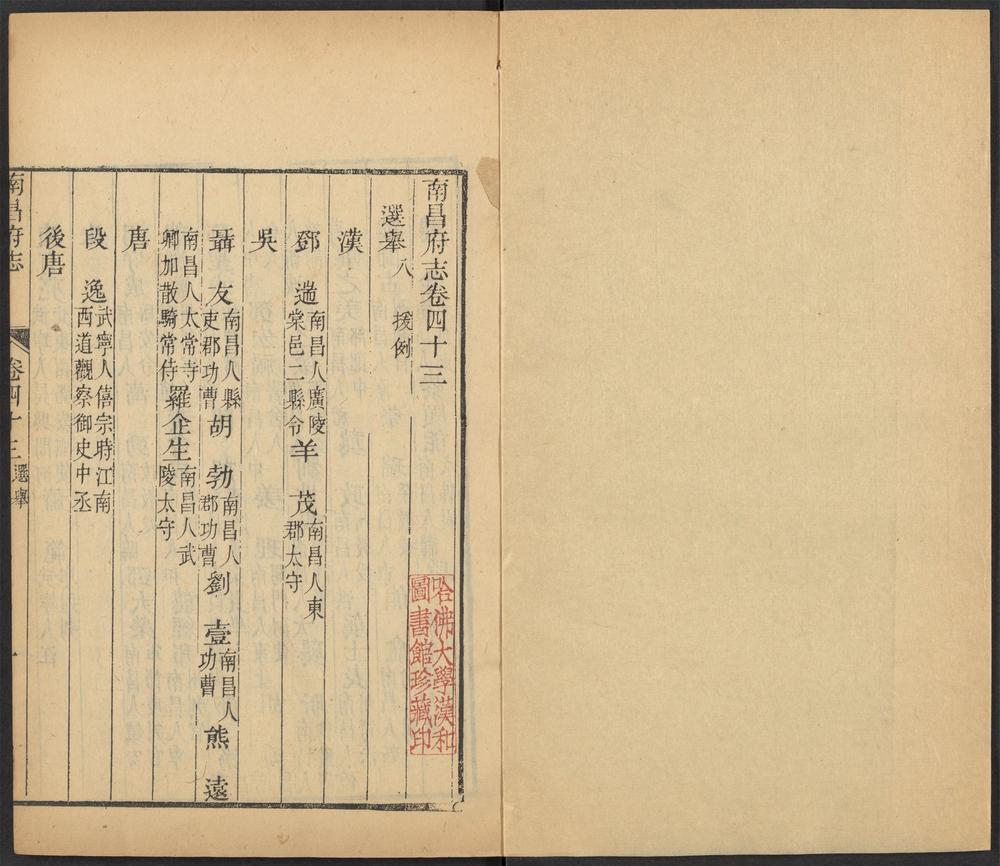 南昌府志卷四十三
選舉八 援例
漢
鄧遄南昌人廣陵棠邑二縣令羊茂南昌人東郡太守
吳
聶友南昌人縣吏郡功曹胡勃南昌人郡功曹劉壹南昌人功曹熊遠
南昌人太常寺卿加散騎常侍羅企生南昌人武陵太守
唐
段逸武寧人僖宗時江南西道觀察御史中丞
後唐
南昌府志 卷四十三 選舉 一
哈佛大學漢和
圖書館珍藏印